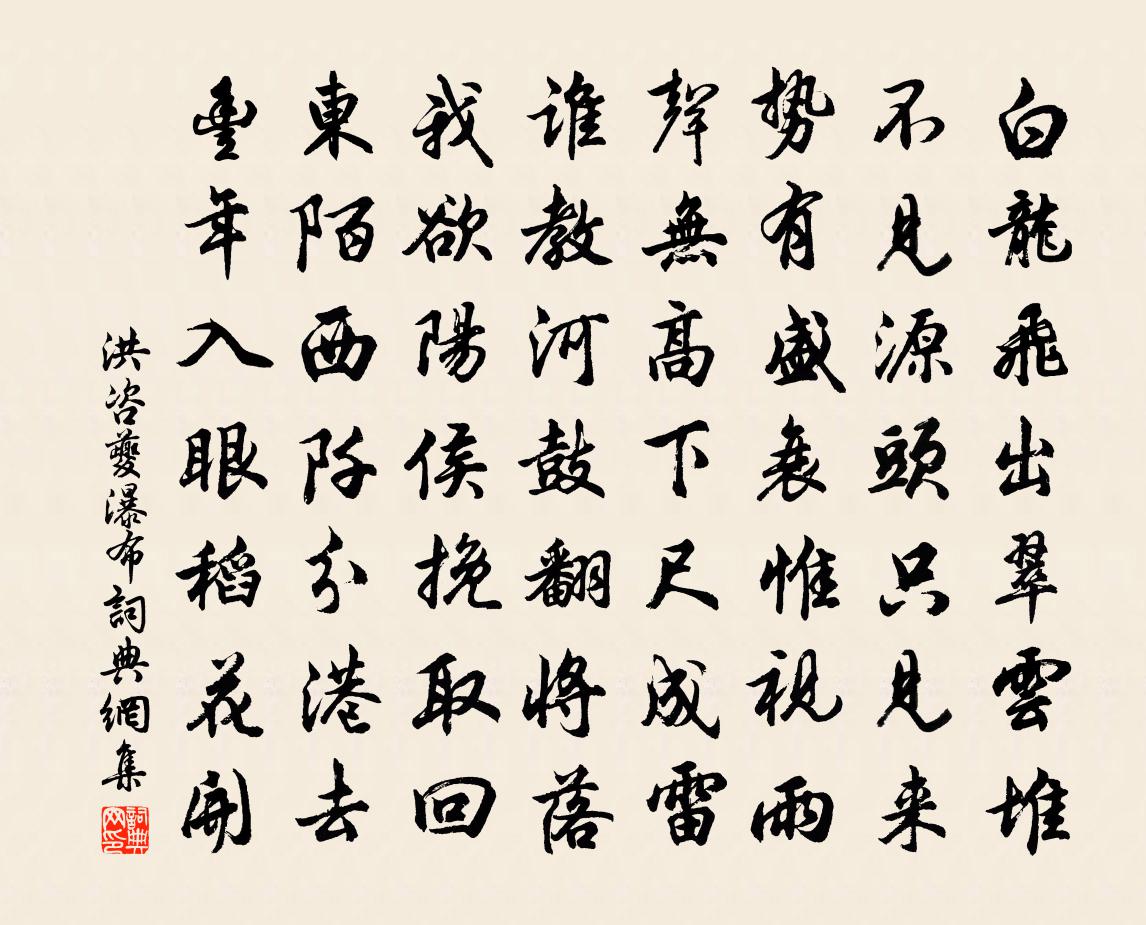 白龍飛出翠雲堆
不見源頭只見来
勢有盛衰惟視雨
聲無高下尺成雷
誰教河鼓翻將落
我欲陽侯挽取回
東陌西阡分港去
豊年入眼稻花開
洪咨夔瀑布詞典網集
詞典网印